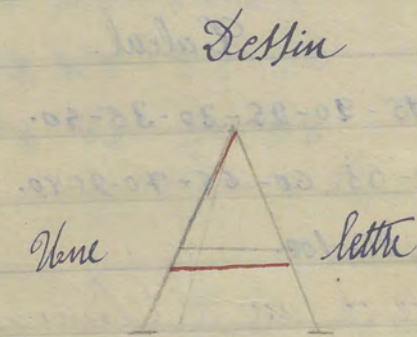 Dessin
Une lettre
A